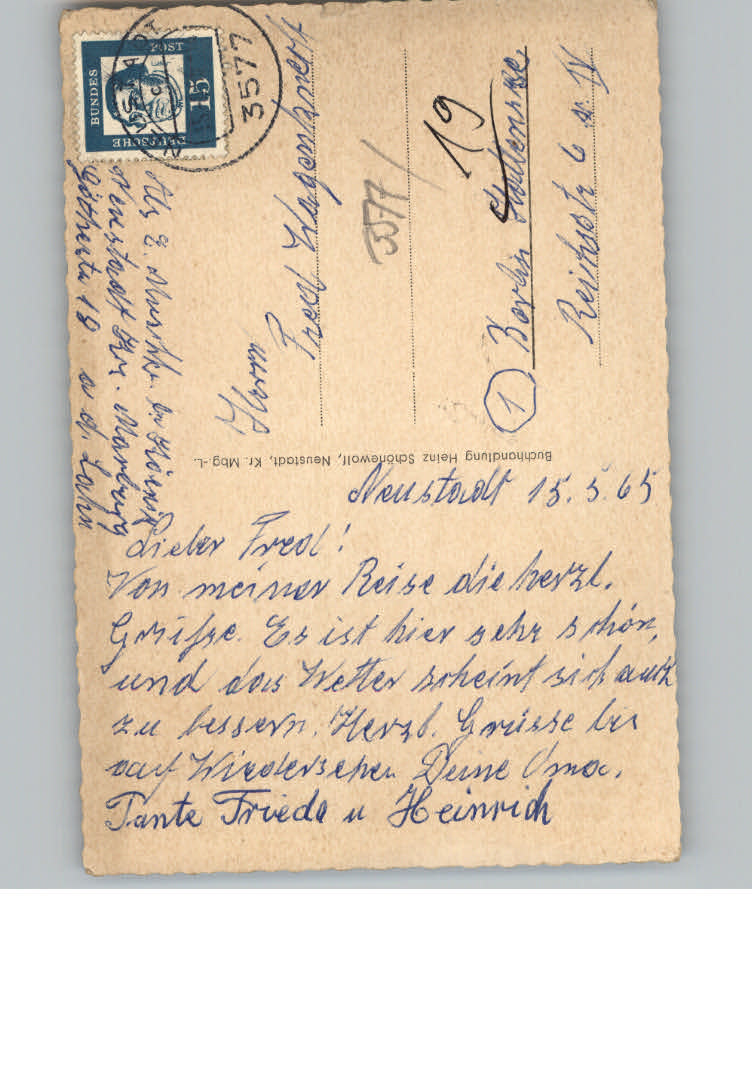 Neustadt 15.5.65
Lieber Fred!
Von meiner Reise die herzl.
Grüße. Es ist hier sehr schön,
und das Wetter scheint sich auch
zu bessern. Herzl. Grüsse bis
auf Wiedersehen Deine Oma.
Tante Frieda u Heinrich
Buchhandlung Heinz Schönewolf, Neustadt, Kr. Mbg.-L.
Herrn
Fred
3577/
19
1 Berlin
6
Abs E.
Neustadt Kr. Marburg
19 a d. Lahn
DEUTSCHE
BUNDES
POST
15
3577